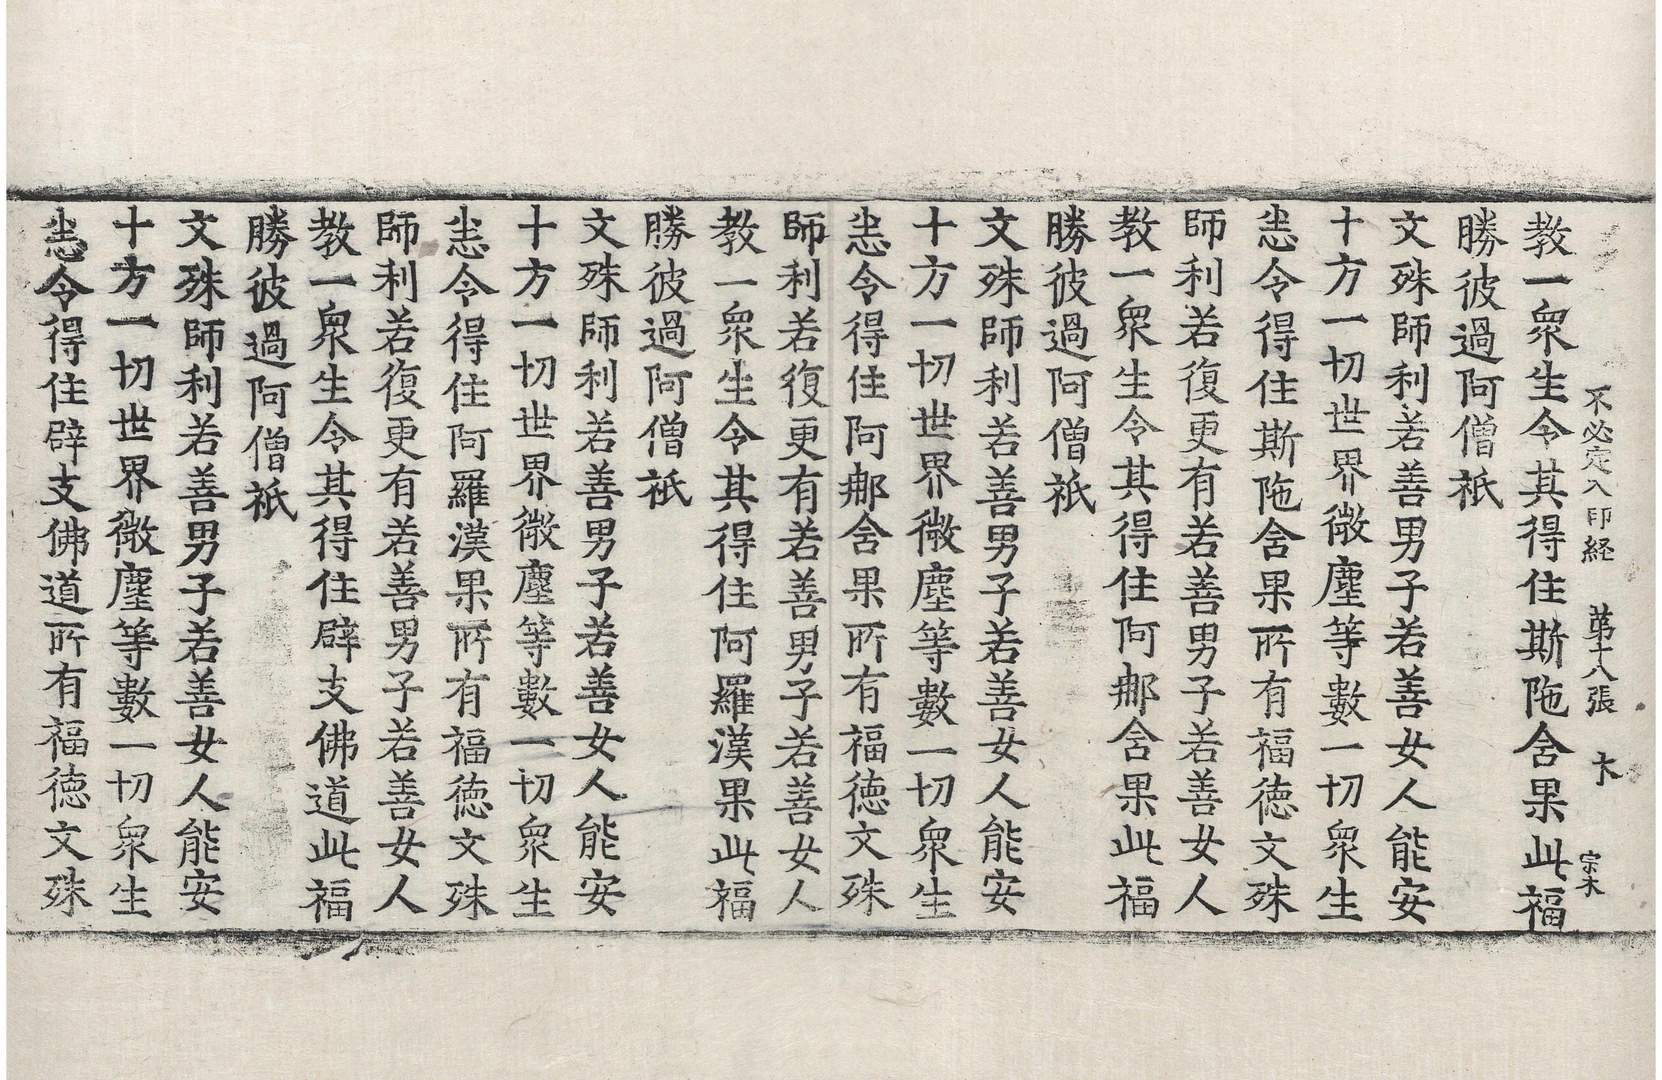 不必定入印経 第十八張 卞 宗木
教一衆生令其得住斯陁舍果此福
勝彼過阿僧祇
文殊師利若善男子若善女人能安
十方一切世界微塵等數一切衆生
悉令得住斯陁舍果所有福徳文殊
師利若復更有若善男子若善女人
教一衆生令其得住阿那舍果此福
勝彼過阿僧祇
文殊師利若善男子若善女人能安
十方一切世界微塵等數一切衆生
悉令得住阿那舍果所有福徳文殊
師利若復更有若善男子若善女人
教一衆生令其得住阿羅漢果此福
勝彼過阿僧祇
文殊師利若善男子若善女人能安
十方一切世界微塵等數一切衆生
悉令得住阿羅漢果所有福徳文殊
師利若復更有若善男子若善女人
教一衆生令其得住辟支佛道此福
勝彼過阿僧祇
文殊師利若善男子若善女人能安
十方一切世界微塵等數一切衆生
悉令得住辟支佛道所有福徳文殊